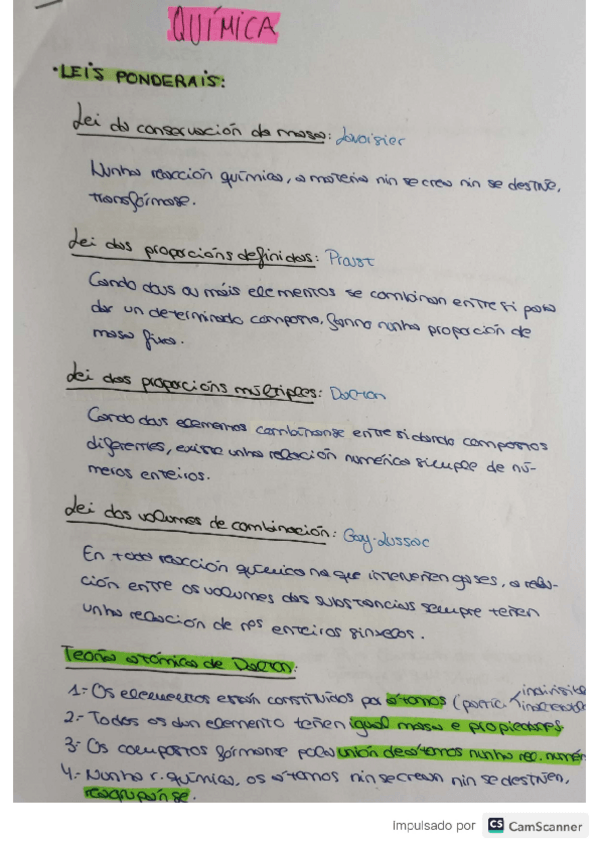 QUÍMICA
• LEIS PONDERAIS:
Lei da conservación da masa: Lavoisier
Nunha reacción química, a materia nin se crea nin se destrúe,
transfórmase.
Lei das proporcións definidas: Proust
Cando dous ou máis elementos se combinan entre si para
dar un determinado composto, fanno nunha proporción de
masa fixa.
Lei das proporcións múltiples: Dalton
Cando dous elementos combínanse entre si dando compostos
diferentes, existe unha relación numérica simple de nú-
meros enteiros.
Lei dos volumes de combinación: Gay-Lussac
En toda reacción química na que interveñen gases, a rela-
ción entre os volumes das substancias sempre teñen
unha relación de nºs enteiros sinxelos.
Teoría atómica de Dalton:
1.- Os elementos están constituídos por átomos (partíc.
2.- Todos os dun elemento teñen igual masa e propiedades
3.- Os compostos fórmanse pola unión de átomos nunha rec. numér
4.- Nunha r. química, os átomos nin se crean nin se destrúen,
reagrúpanse.
Impulsado por CS CamScanner